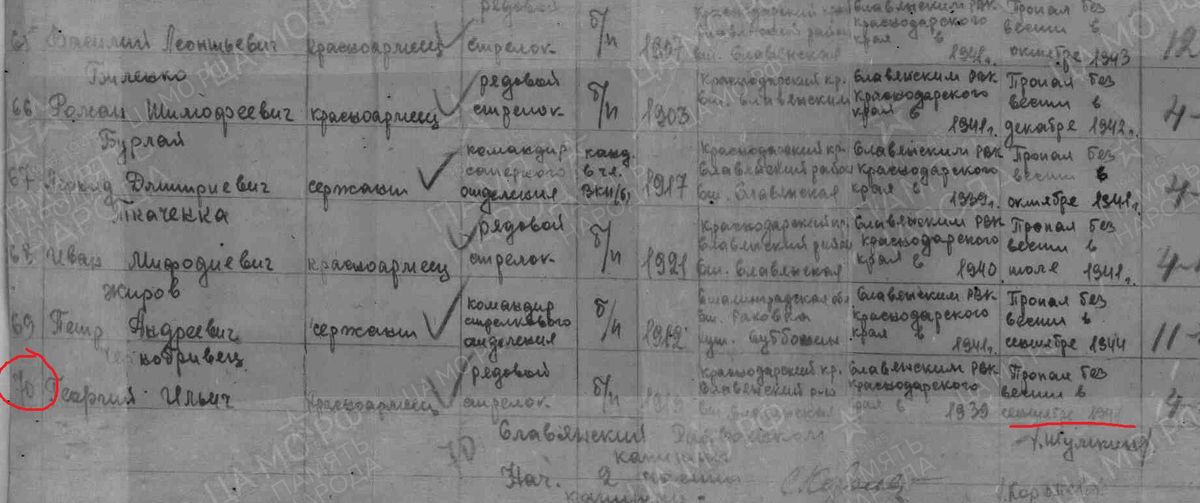 рядовой
65 Василий Леонтьевич красноармеец стрелок б/п 1907 ст. Славянская 1941г. октябре 1943 12
Пропал без
вести в
Славянским РВК
Краснодарского
края в
Биленко
66 Роман Тимофеевич красноармеец стрелок б/п 1903 ст. Славянским края в 1941г. декабре 1942г. 4-
рядовой
Краснодарский кр. Славянским РВК Пропал без
Краснодарского вести в
Бурлай
67 Леонид Дмитриевич сержант отделения ВКП(б) 1917 ст. Славянская края в 1939г. октябре 1941г. 4
командир канд.
саперного в чл.
Краснодарский кр. Славянским РВК Пропал без
Славянский район Краснодарского вести в
Ткаченка
68 Иван Мифодиевич красноармеец стрелок б/п 1921 ст. Славянская края в 1940 июле 1941г. 4-
рядовой
Краснодарский кр. Славянским РВК Пропал без
Славянский район Краснодарского вести в
Жиров
69 Петр Андреевич сержант отделения б/п 1912 края в 1941г. сентябре 1944 11-
командир
стрелкового
Сталинградская об. Славянским РВК Пропал без
ст. Раковка Краснодарского вести в
Чернобривец
70 Георгий Ильич красноармеец стрелок б/п ст. Славянская края в 1939 сентябре 1941
рядовой
Краснодарский кр. Славянским РВК Пропал без
Славянский Краснодарского вести в 4
70 Славянский Райвоенком
капитан
Нач. 2 части